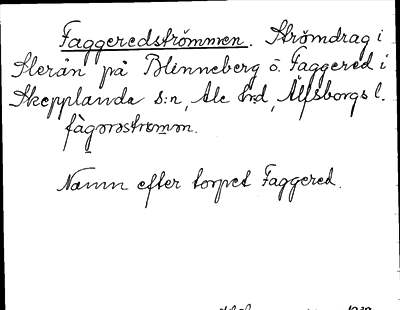 Faggeredströmmen. Strömdrag i
Slerån på Blinneberg ö. Faggered i
Skepplanda s:n, Ale hrd, Älfsborgs l.
fàgərəstrəmən.
Namn efter torpet Faggered.